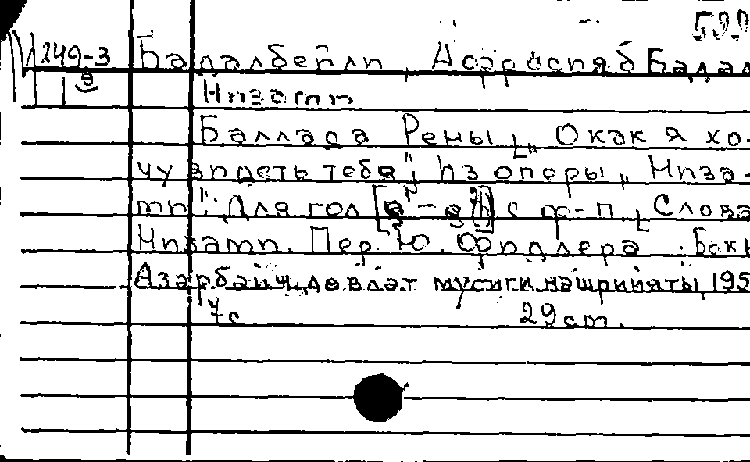 599
М 249-3 Бадалбейли, Әфрасияб Бадал
1э Низами
Баллада Рены „О как я хо-
чу видеть тебя", из оперы „Низа-
ми". Для гол с ф-п. Слова
Низами. Пер. Ю. Фидлера. Бакы
Азәрбайҹ. дөвләт мусиги нәшриййаты, 195
7с 29 cm.